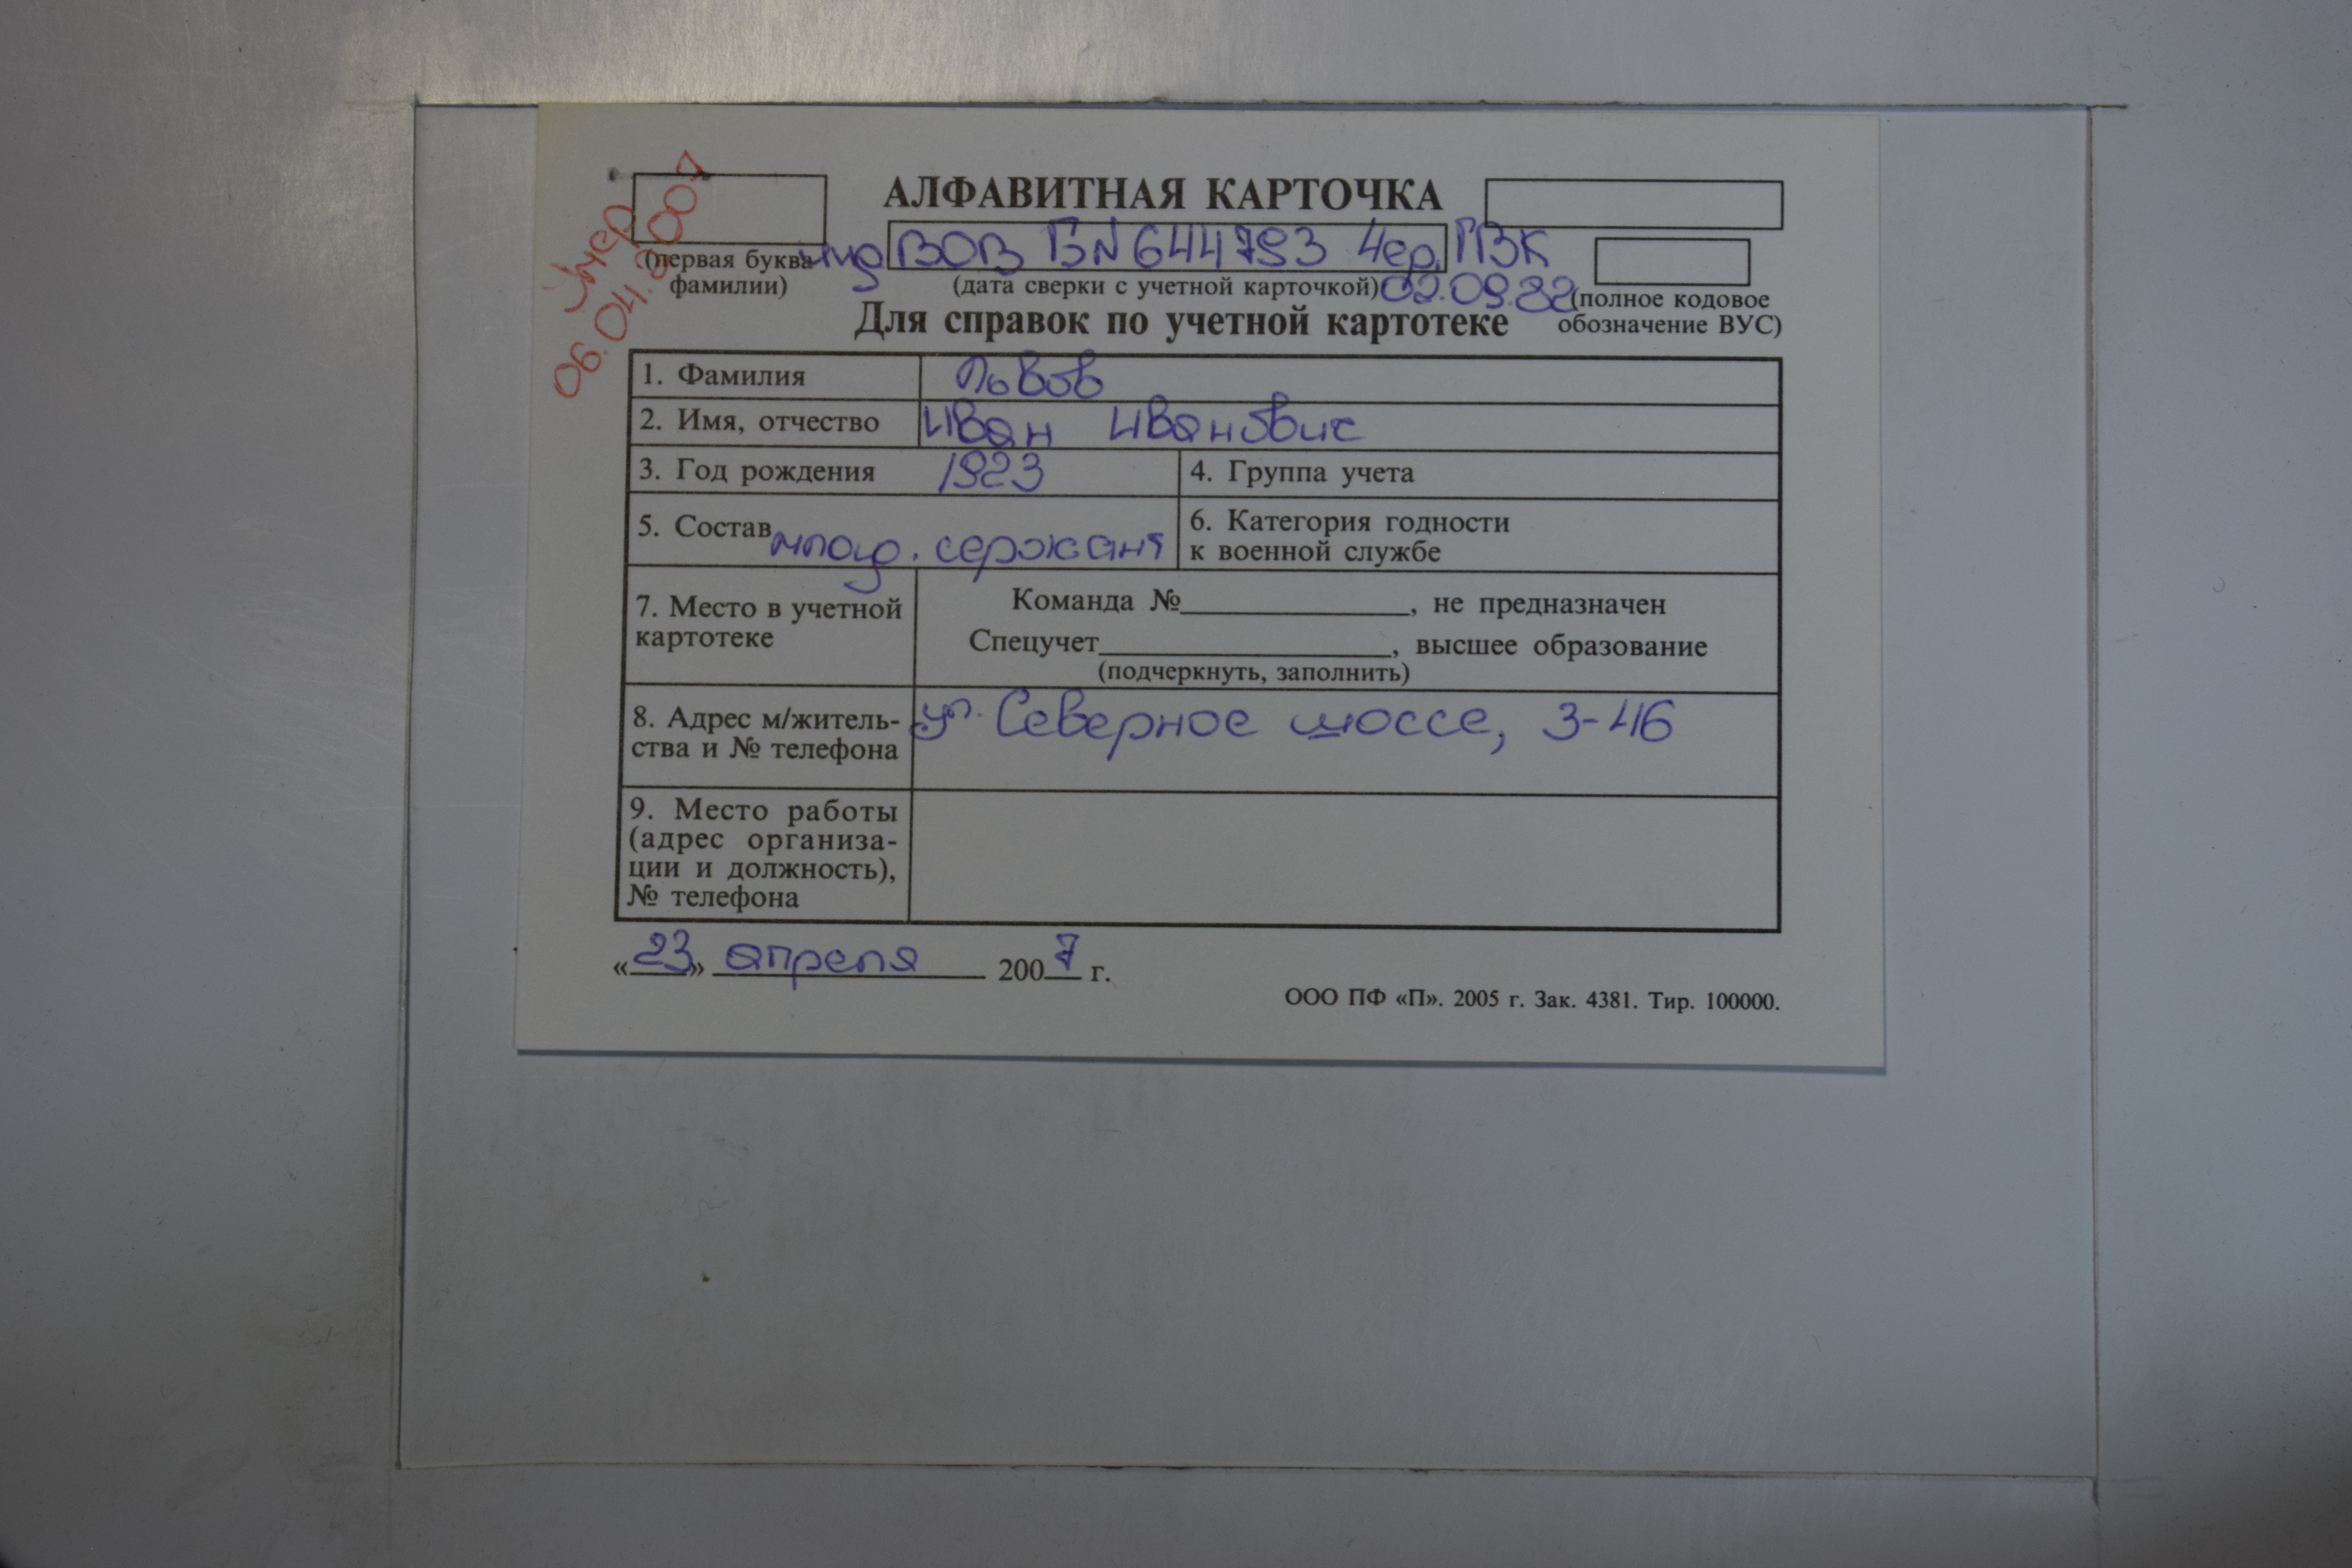 Умер
06.04.2007
АЛФАВИТНАЯ КАРТОЧКА
(первая буква
фамилии)
инд ВОВ БN 644793 Чер. ГВК
02.09.82
(дата сверки с учетной карточкой)
(полное кодовое
обозначение ВУС)
Для справок по учетной картотеке
1. Фамилия Львов
2. Имя, отчество Иван Иванович
3. Год рождения 1923
4. Группа учета
5. Состав млад. сержант
6. Категория годности
к военной службе
7. Место в учетной
картотеке
Команда №__________, не предназначен
Спецучет__________, высшее образование
(подчеркнуть, заполнить)
8. Адрес м/житель-
ства и № телефона
ул. Северное шоссе, 3-46
9. Место работы
(адрес организа-
ции и должность),
№ телефона
«23» апреля 2007 г.
ООО ПФ «П». 2005 г. Зак. 4381. Тир. 100000.